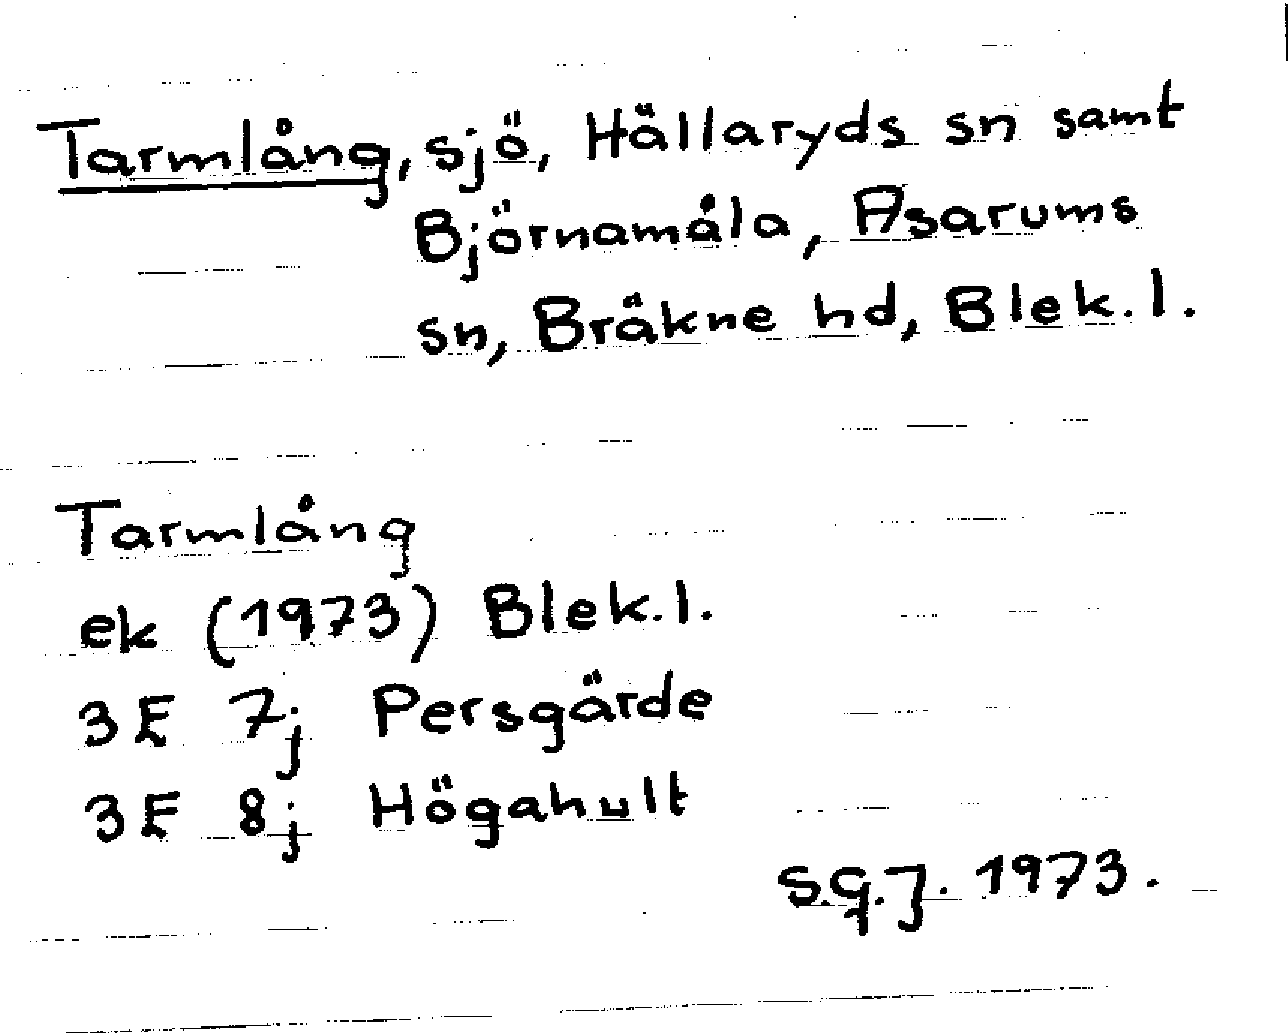 Tarmlång, sjö, Hällaryds sn samt
Björnamåla, Asarums
sn, Bräkne hd, Blek. l.
Tarmlång
ek (1973) Blek. l.
3E 7j Persgärde
3E 8j Högahult
S.G.J. 1973.